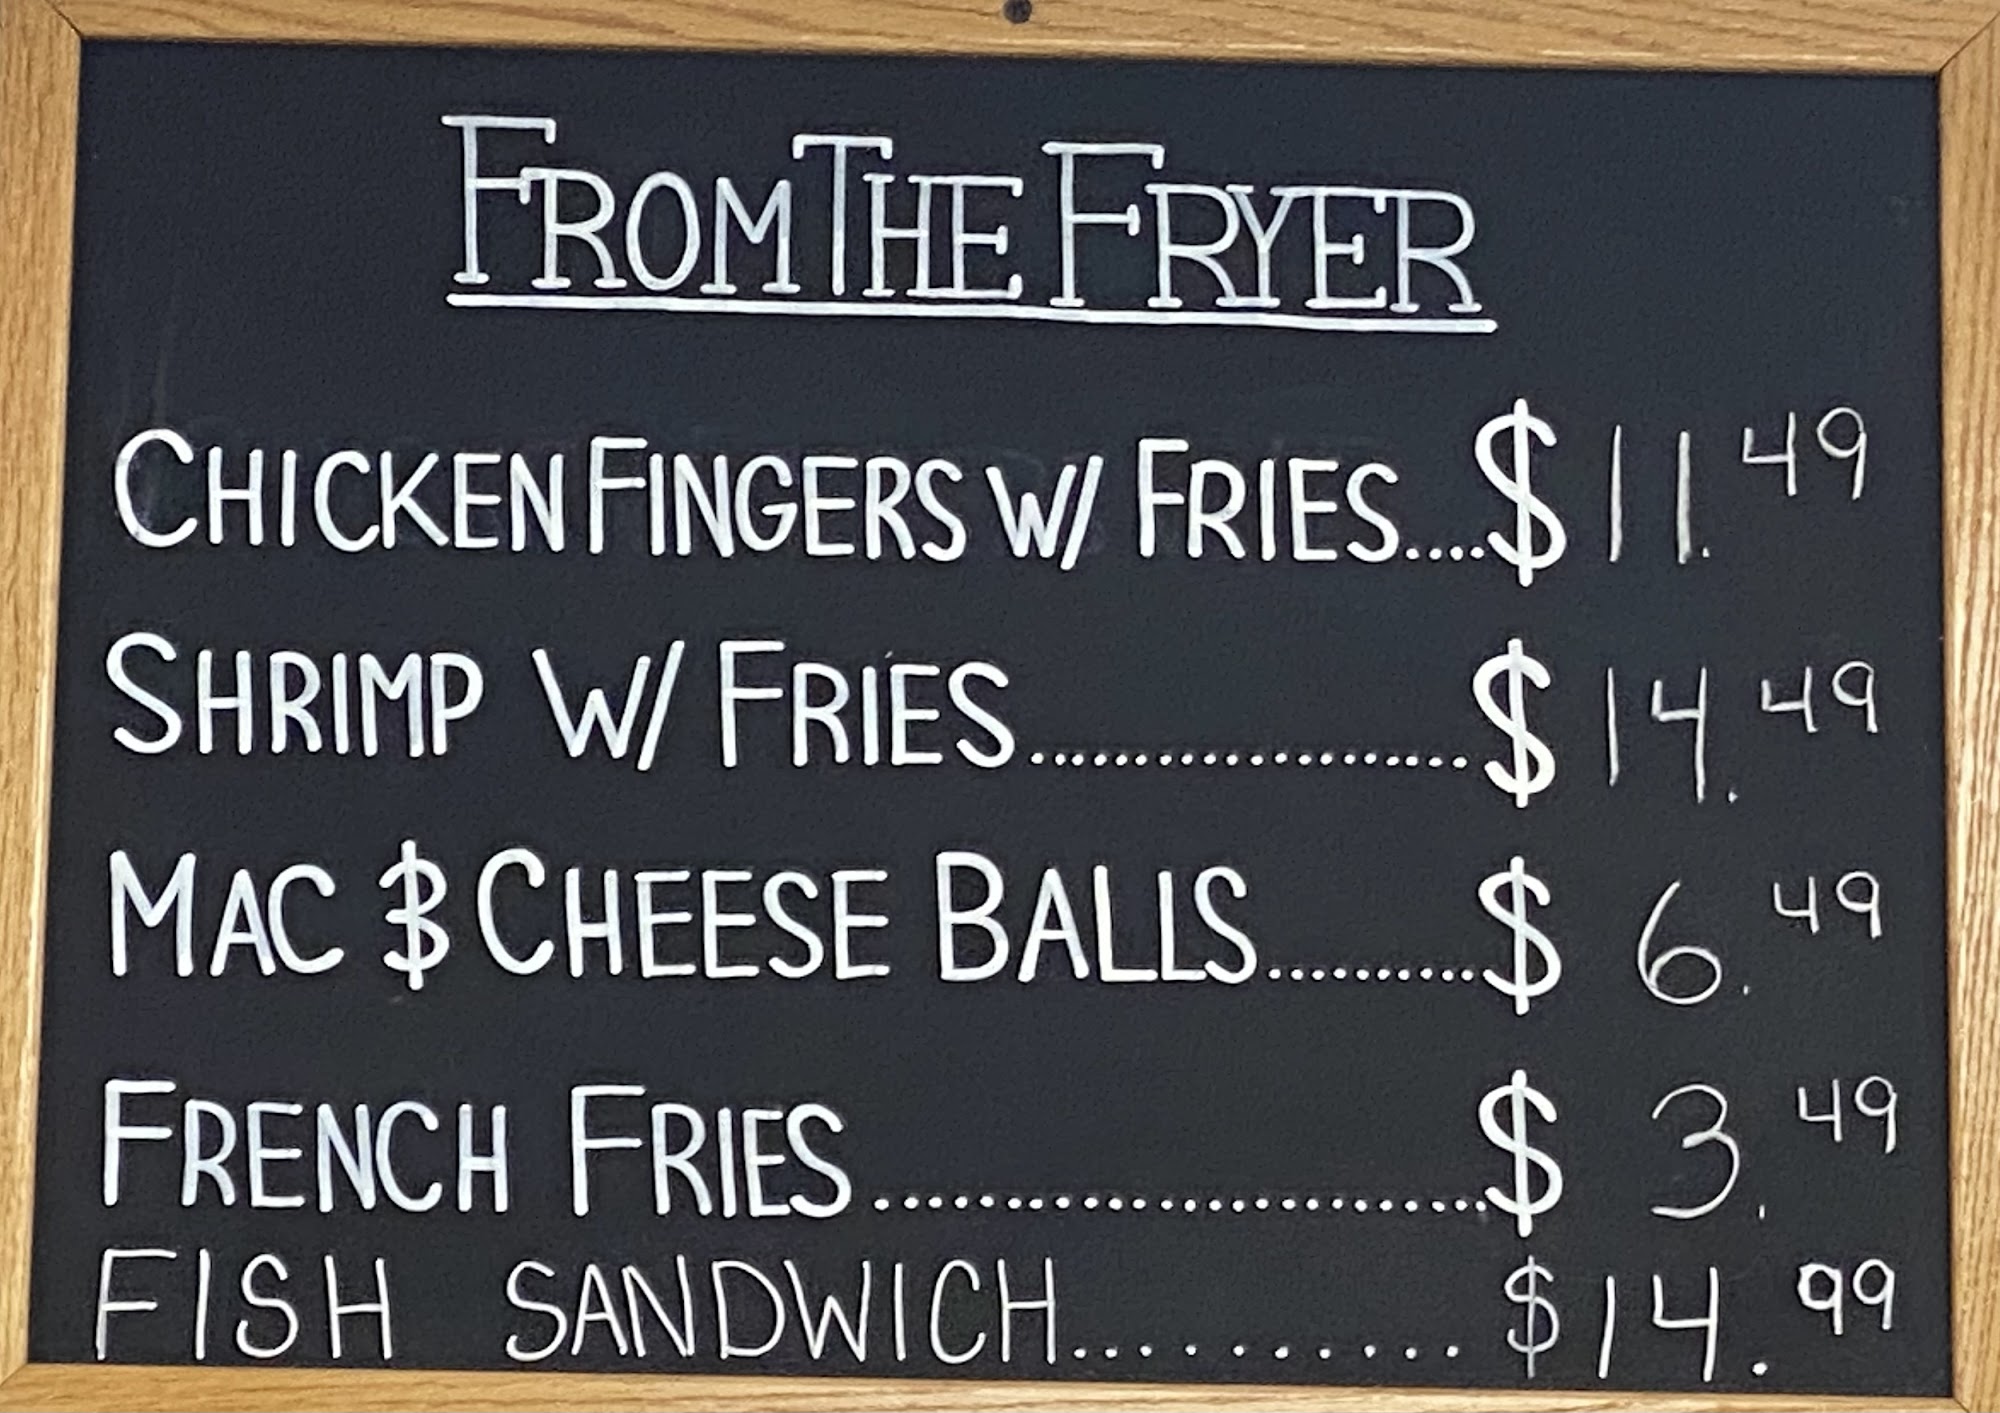 FROM THE FRYER
CHICKEN FINGERS W/ FRIES....$11.49
SHRIMP W/ FRIES....................$14.49
MAC & CHEESE BALLS..........$ 6.49
FRENCH FRIES........................$ 3.49
FISH SANDWICH............$14.99